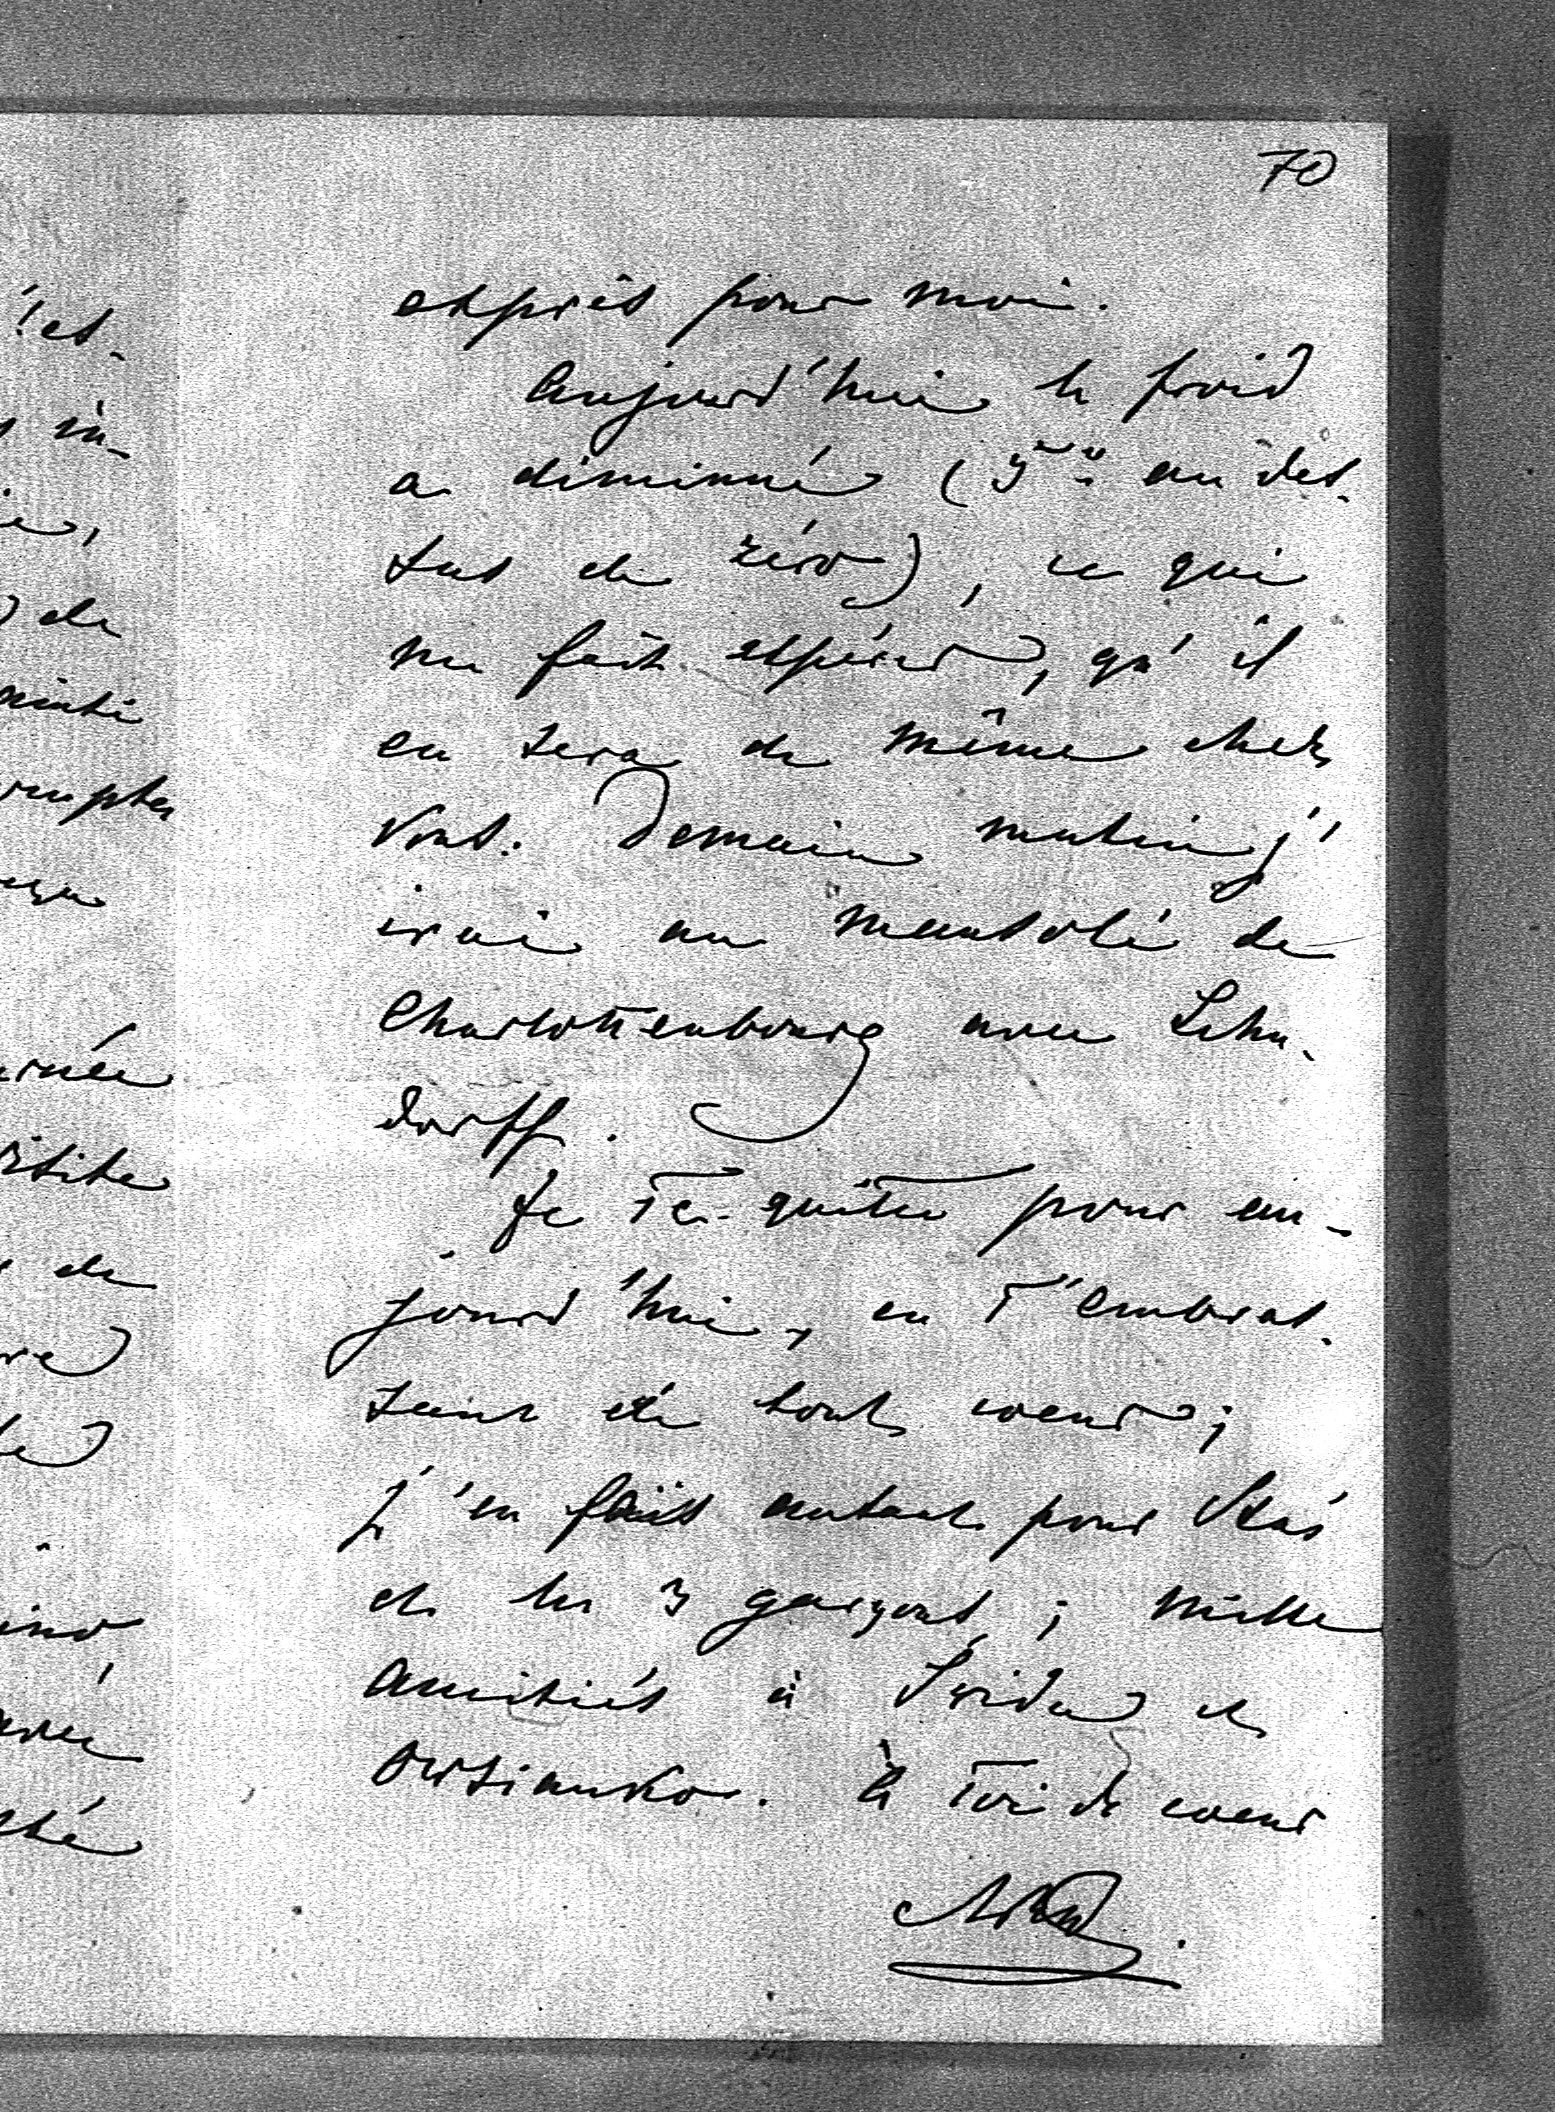 70
exprès pour moi.
Aujourd'hui le froid
a diminué (5° au des-
sus de zéro), ce qui
me fait espérer, qu'il
en sera de même chez
vous. Demain matin j'
irai au mausolé de
Charlottenbourg avec Lehn-
dorff.
Je Te quitte pour au-
jourd'hui, en T'embras-
sant de tout coeur;
j'en fais autant pour Stas
et les 3 garçons; mille
amitiés à Frida et
à Toi de coeur